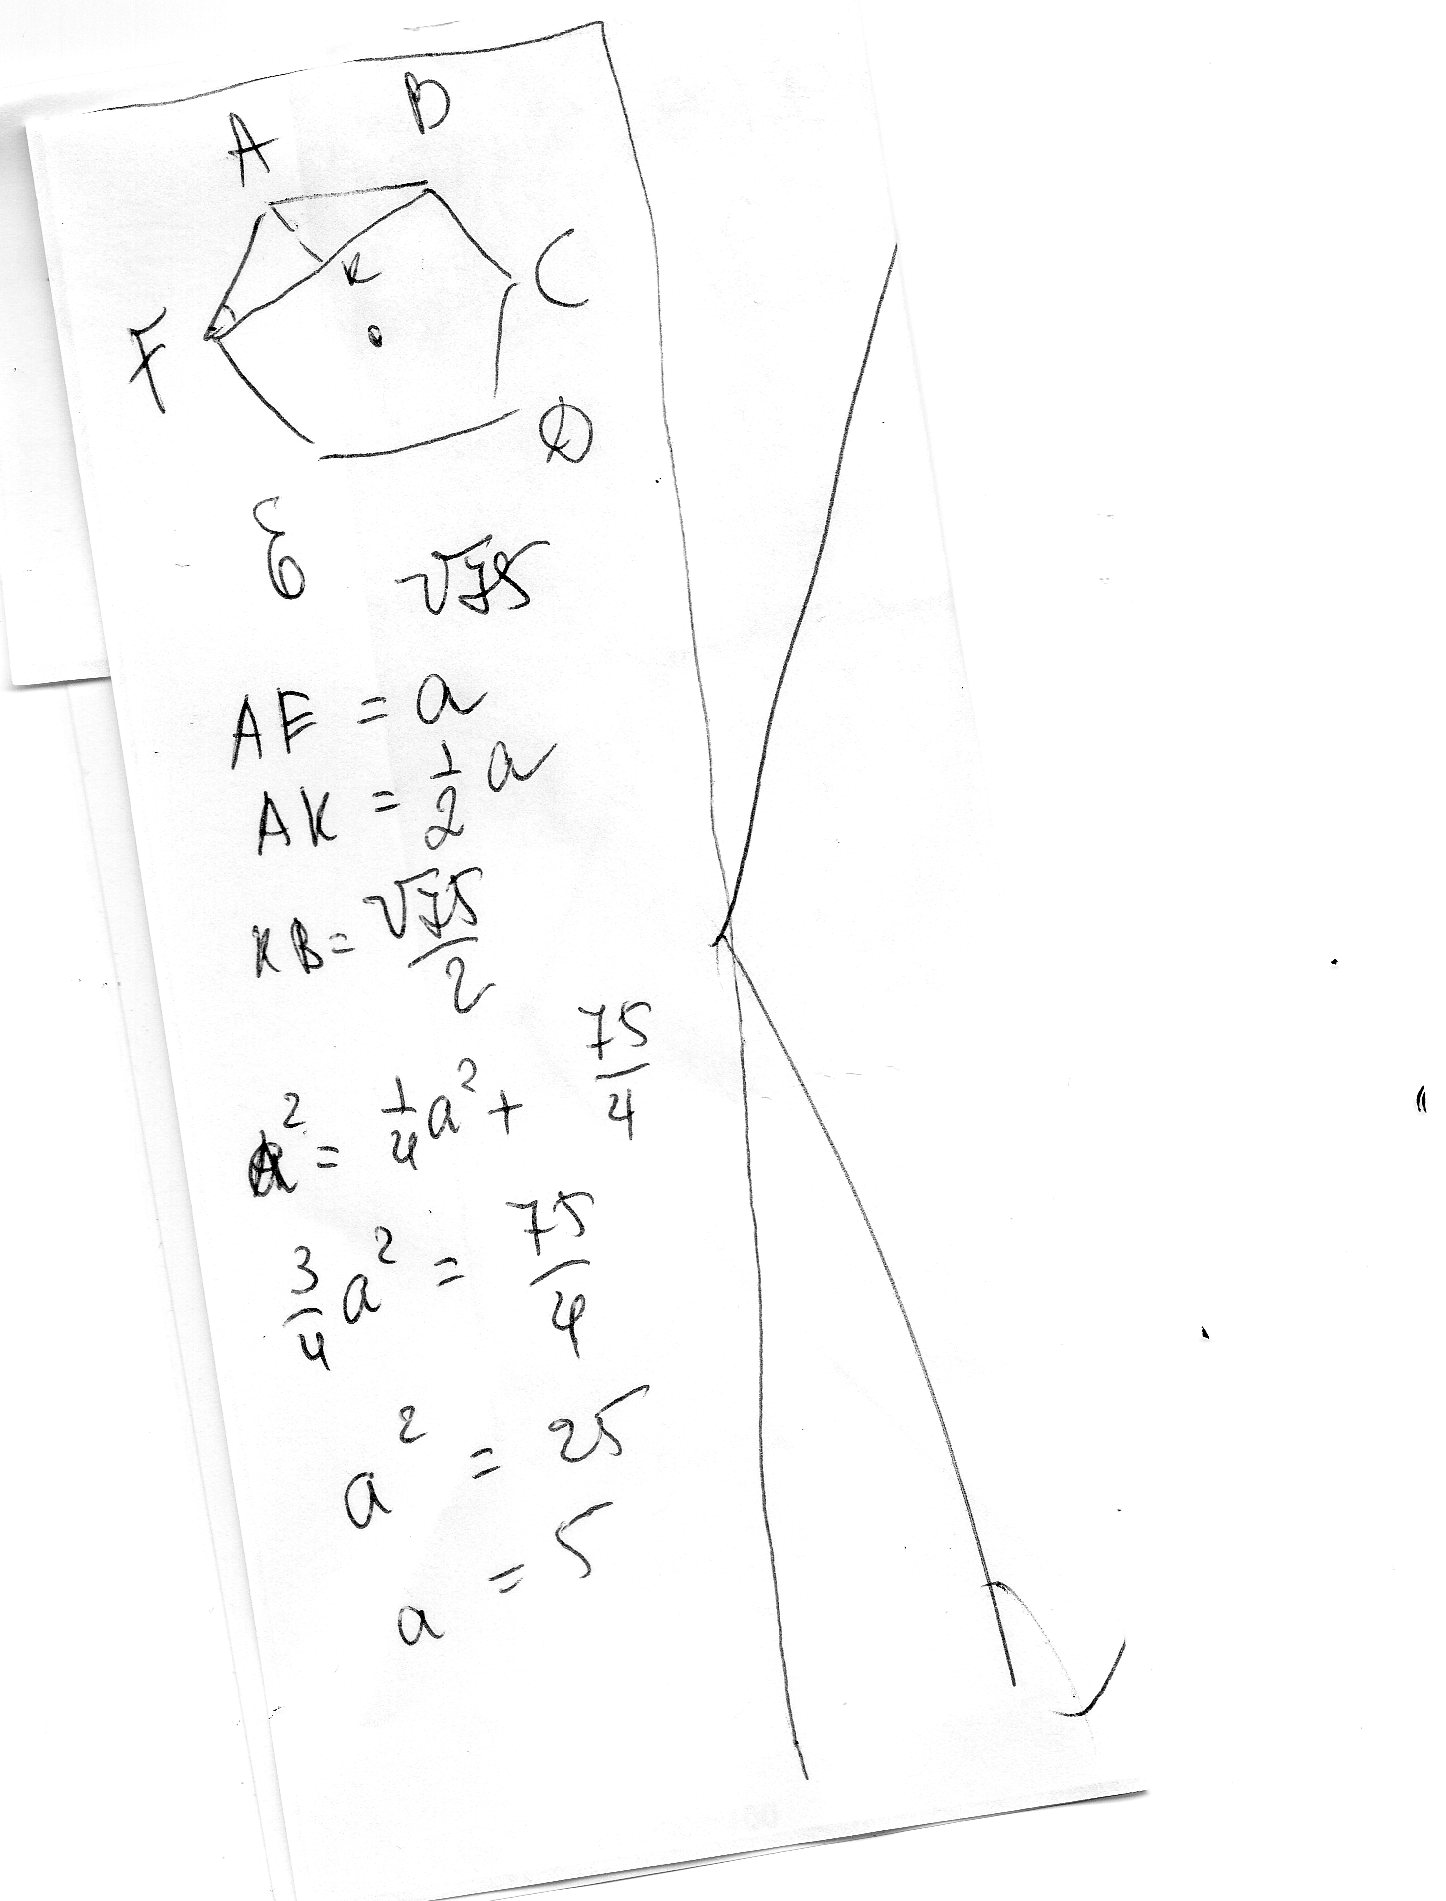 A B
K C
F
D
E √75
AF = a
AK = 1/2 a
KB = √75/2
a² = 1/4 a² + 75/4
3/4 a² = 75/4
a² = 25
a = 5